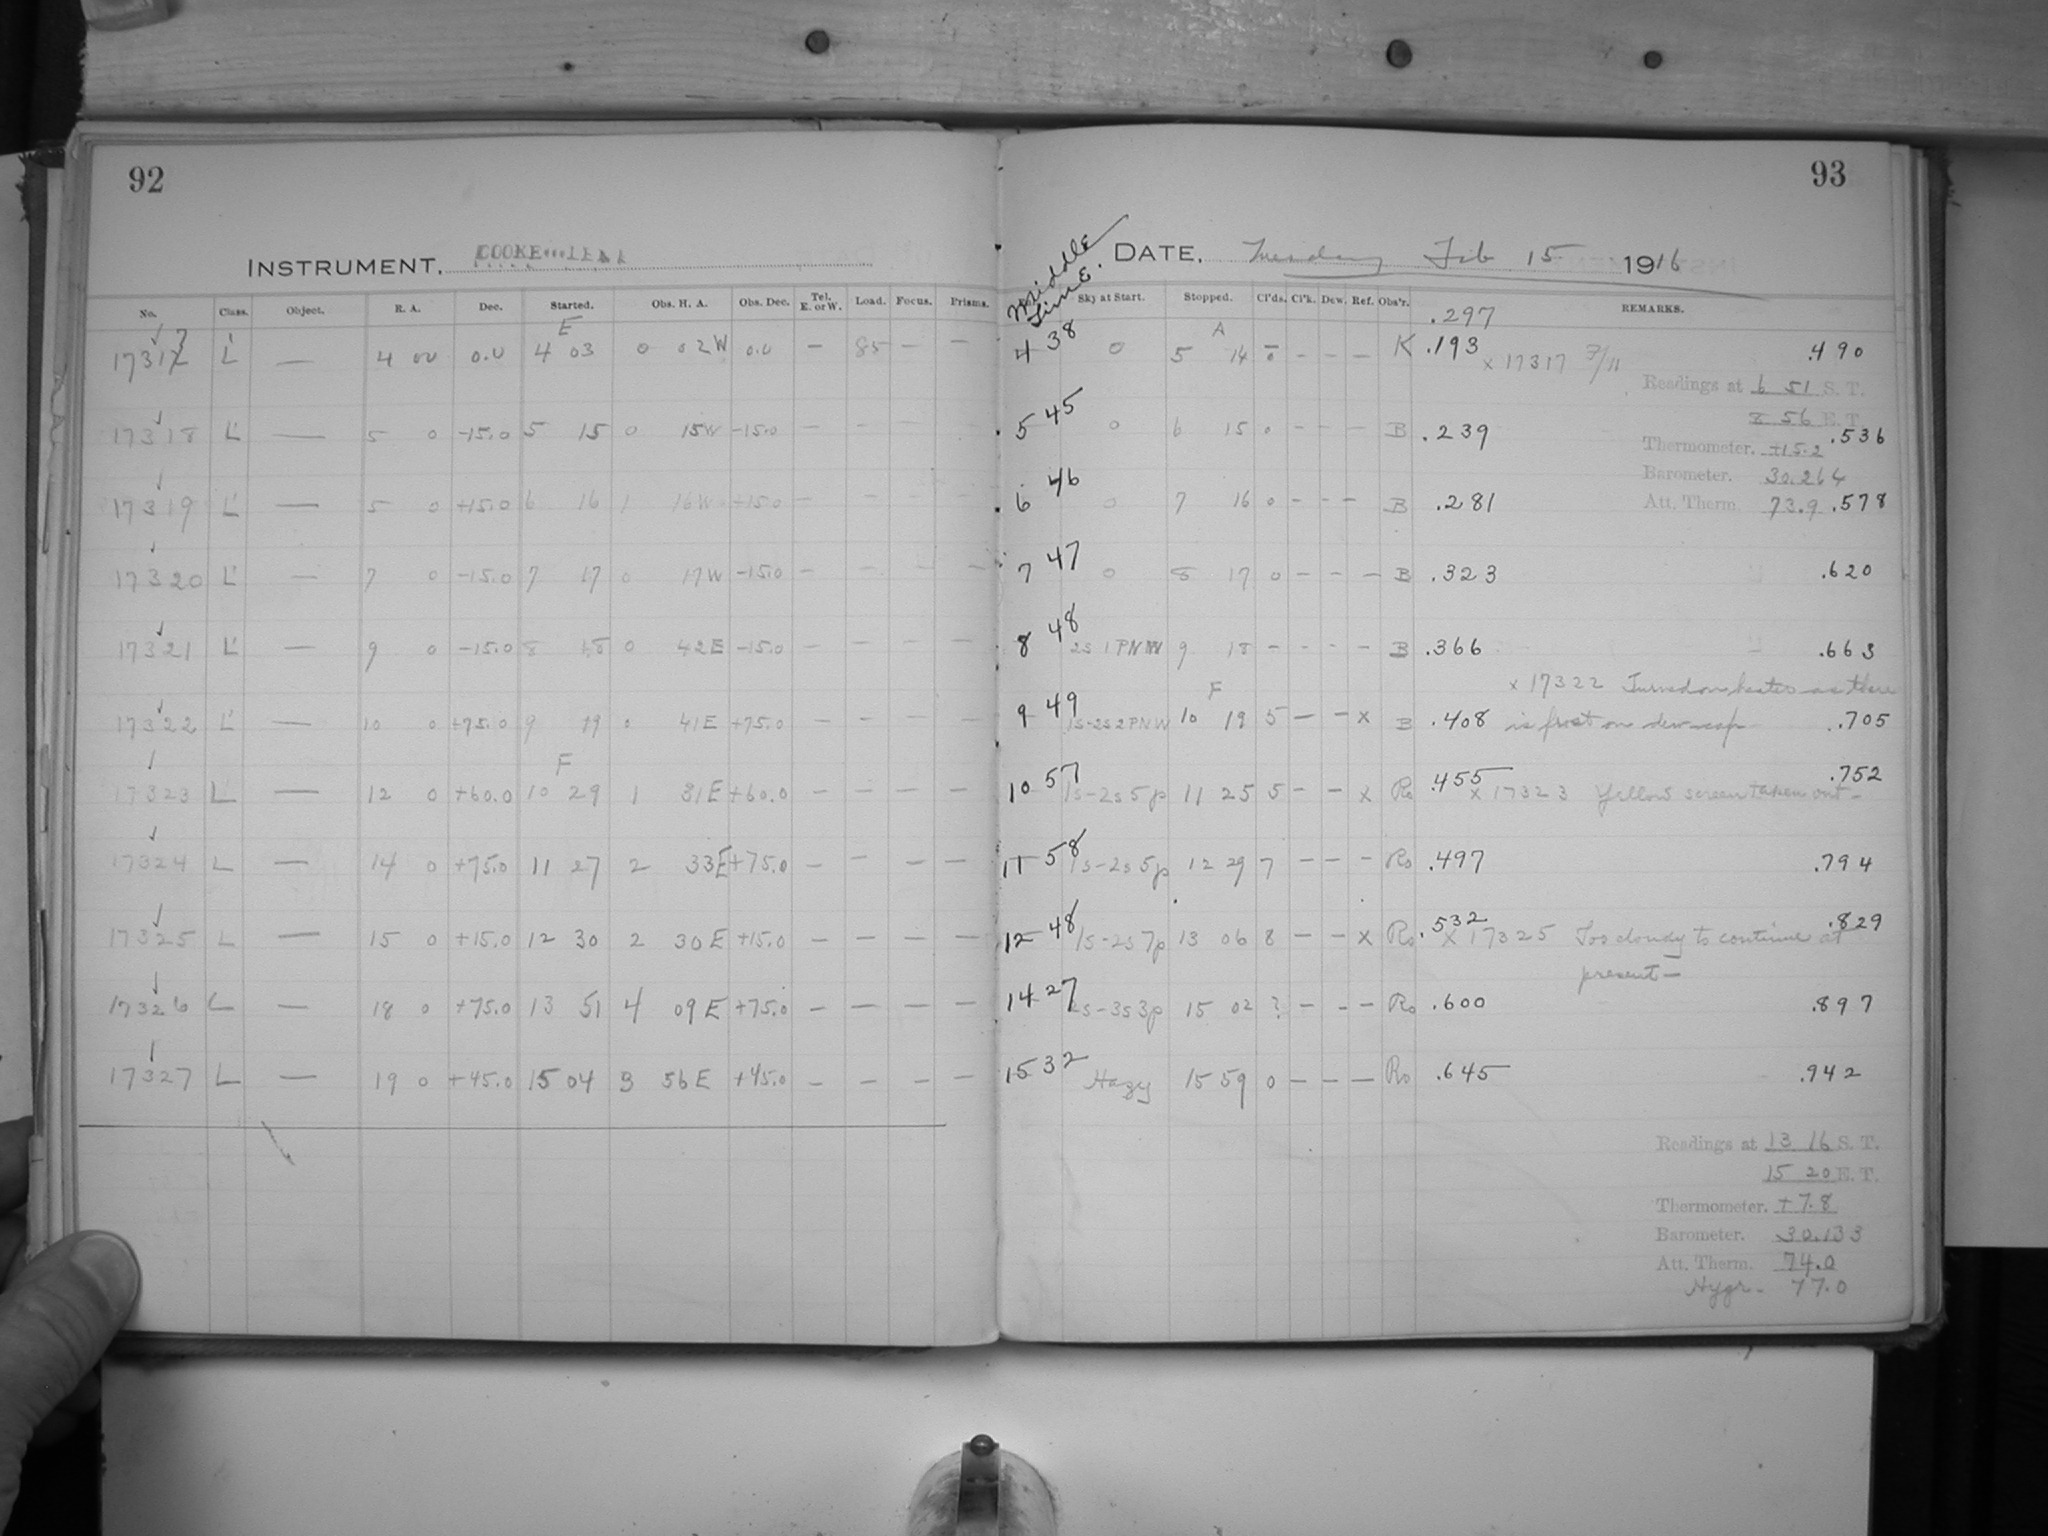 92
INSTRUMENT. COOKE LENS
No. Class. Object. R. A. Dec. Started. Obs. H. A. Obs. Dec. Tel. E. or W. Load. Focus. Prisms.
E
17317 L' — 4 00 0.0 4 03 0 02W 0.0 — 85 — —
17318 L' — 5 0 -15.0 5 15 0 15W -15.0 — — — —
17319 L' — 5 0 +15.0 6 16 1 16W +15.0 — — — —
17320 L' — 7 0 -15.0 7 17 0 17W -15.0 — — — —
17321 L' — 9 0 -15.0 8 18 0 42E -15.0 — — — —
17322 L' — 10 0 +75.0 9 19 0 41E +75.0 — — — —
F
17323 L — 12 0 +60.0 10 29 1 31E +60.0 — — — —
17324 L — 14 0 +75.0 11 27 2 33E +75.0 — — — —
17325 L — 15 0 +15.0 12 30 2 30E +15.0 — — — —
17326 L — 18 0 +75.0 13 51 4 09E +75.0 — — — —
17327 L — 19 0 +45.0 15 04 3 56E +45.0 — — — —
93
DATE. Tuesday Feb 15 1916
Middle Time. Sky at Start. Stopped. Cl'ds. Cl'k. Dew. Ref. Obs'r. REMARKS.
.297
A
4 38 0 5 14 0 — — — K .193 x 17317 3/11 .490
Readings at 6 51 S. T.
8 56 E. T.
5 45 0 6 15 0 — — — B .239 .536
Thermometer. +15.2
Barometer. 30.264
6 46 0 7 16 0 — — — B .281 Att. Therm. 73.9 .578
7 47 0 8 17 0 — — — B .323 .620
8 48 2S 1PNW 9 18 — — — — B .366 .663
x 17322 Turned on heater as there
F
9 49 1S-2S2PNW 10 19 5 — — x B .408 is frost on dew-cap .705
10 57 1s-2s 5p 11 25 5 — — x Ro .455 x 17323 Yellow screen taken out— .752
11 58 1s-2s 5p 12 29 7 — — — Ro .497 .794
12 48 1s-2s 7p 13 06 8 — — x Ro .532 x 17325 Too cloudy to continue at .829
present—
14 27 2s-3s 3p 15 02 ? — — — Ro .600 .897
15 32 Hazy 15 59 0 — — — Ro .645 .942
Readings at 13 16 S. T.
15 20 E. T.
Thermometer. +7.8
Barometer. 30.133
Att. Therm. 74.0
Hygr. 77.0